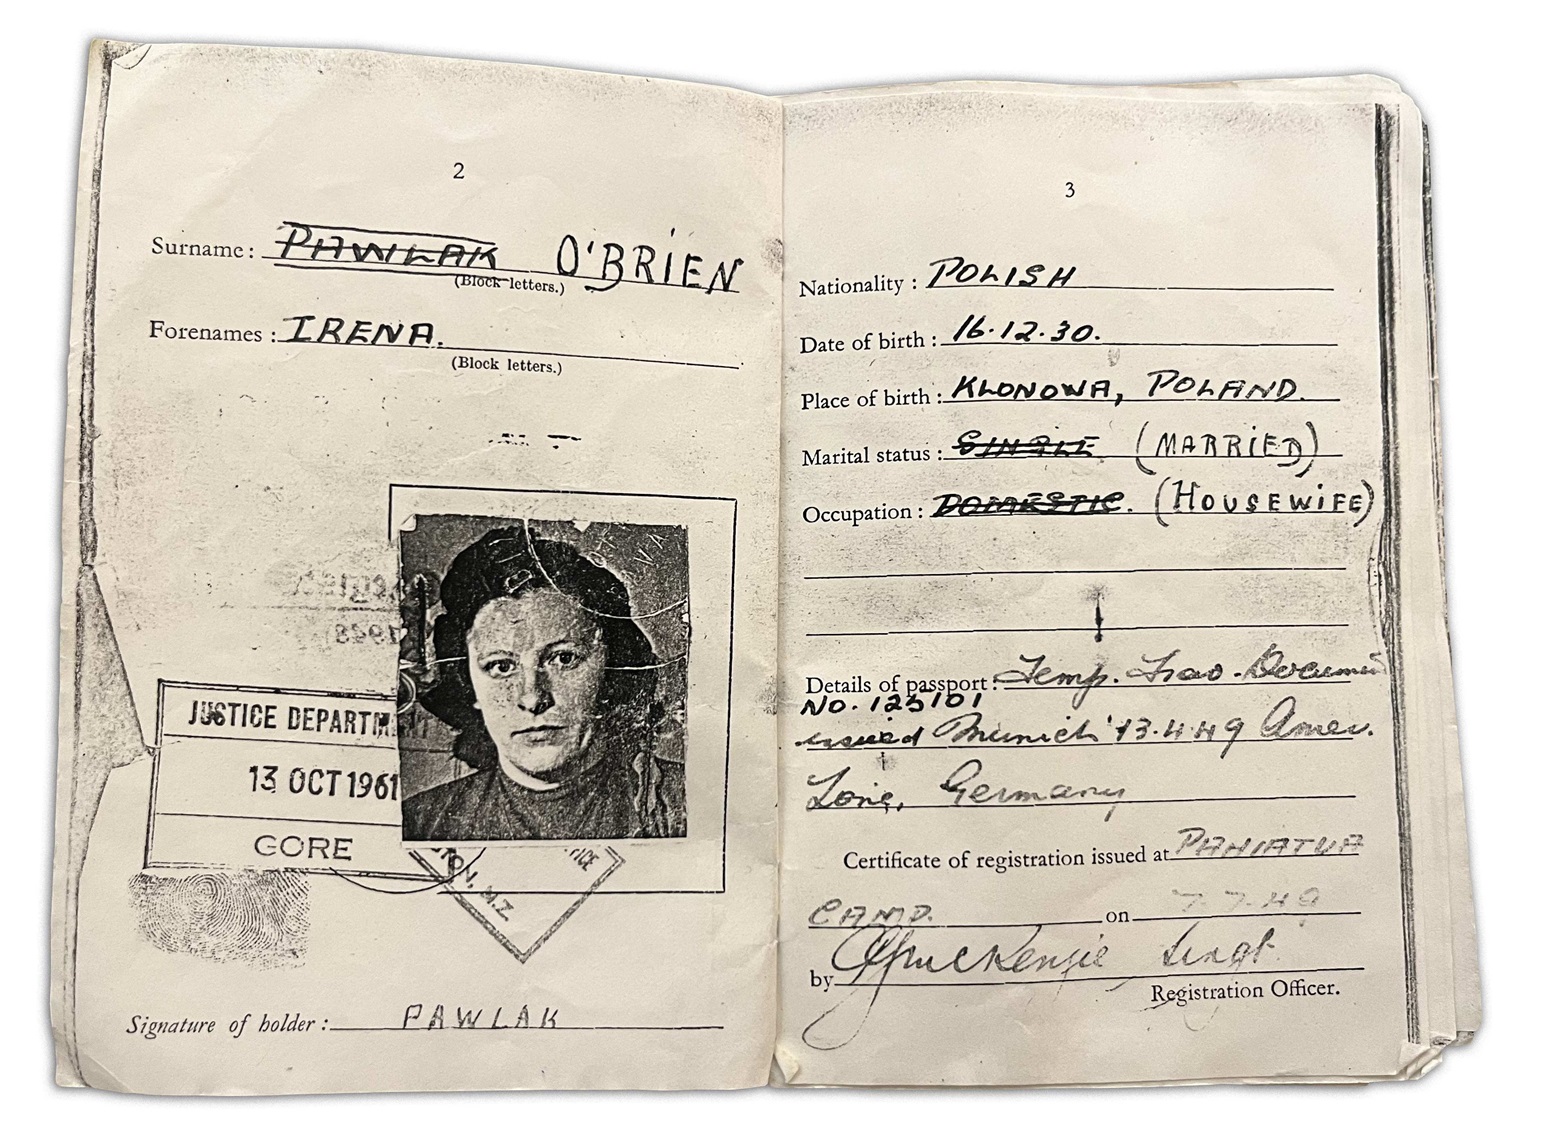 2
Surname: PAWLAK O'BRIEN
(Block letters.)
Forenames: IRENA.
(Block letters.)
JUSTICE DEPARTM
13 OCT 1961
GORE
TON, N.Z
ICE
Signature of holder: PAWLAK
3
Nationality: POLISH
Date of birth: 16.12.30.
Place of birth: KLONOWA, POLAND.
Marital status: SINGLE (MARRIED)
Occupation: DOMESTIC. (HOUSEWIFE)
Details of passport: Temp. Trav. Documen
No. 123101
issued Munich 13.4.49 Amer.
Zone, Germany
Certificate of registration issued at PAHIATUA
CAMP. on 7.7.49
by MacKenzie Sergt.
Registration Officer.